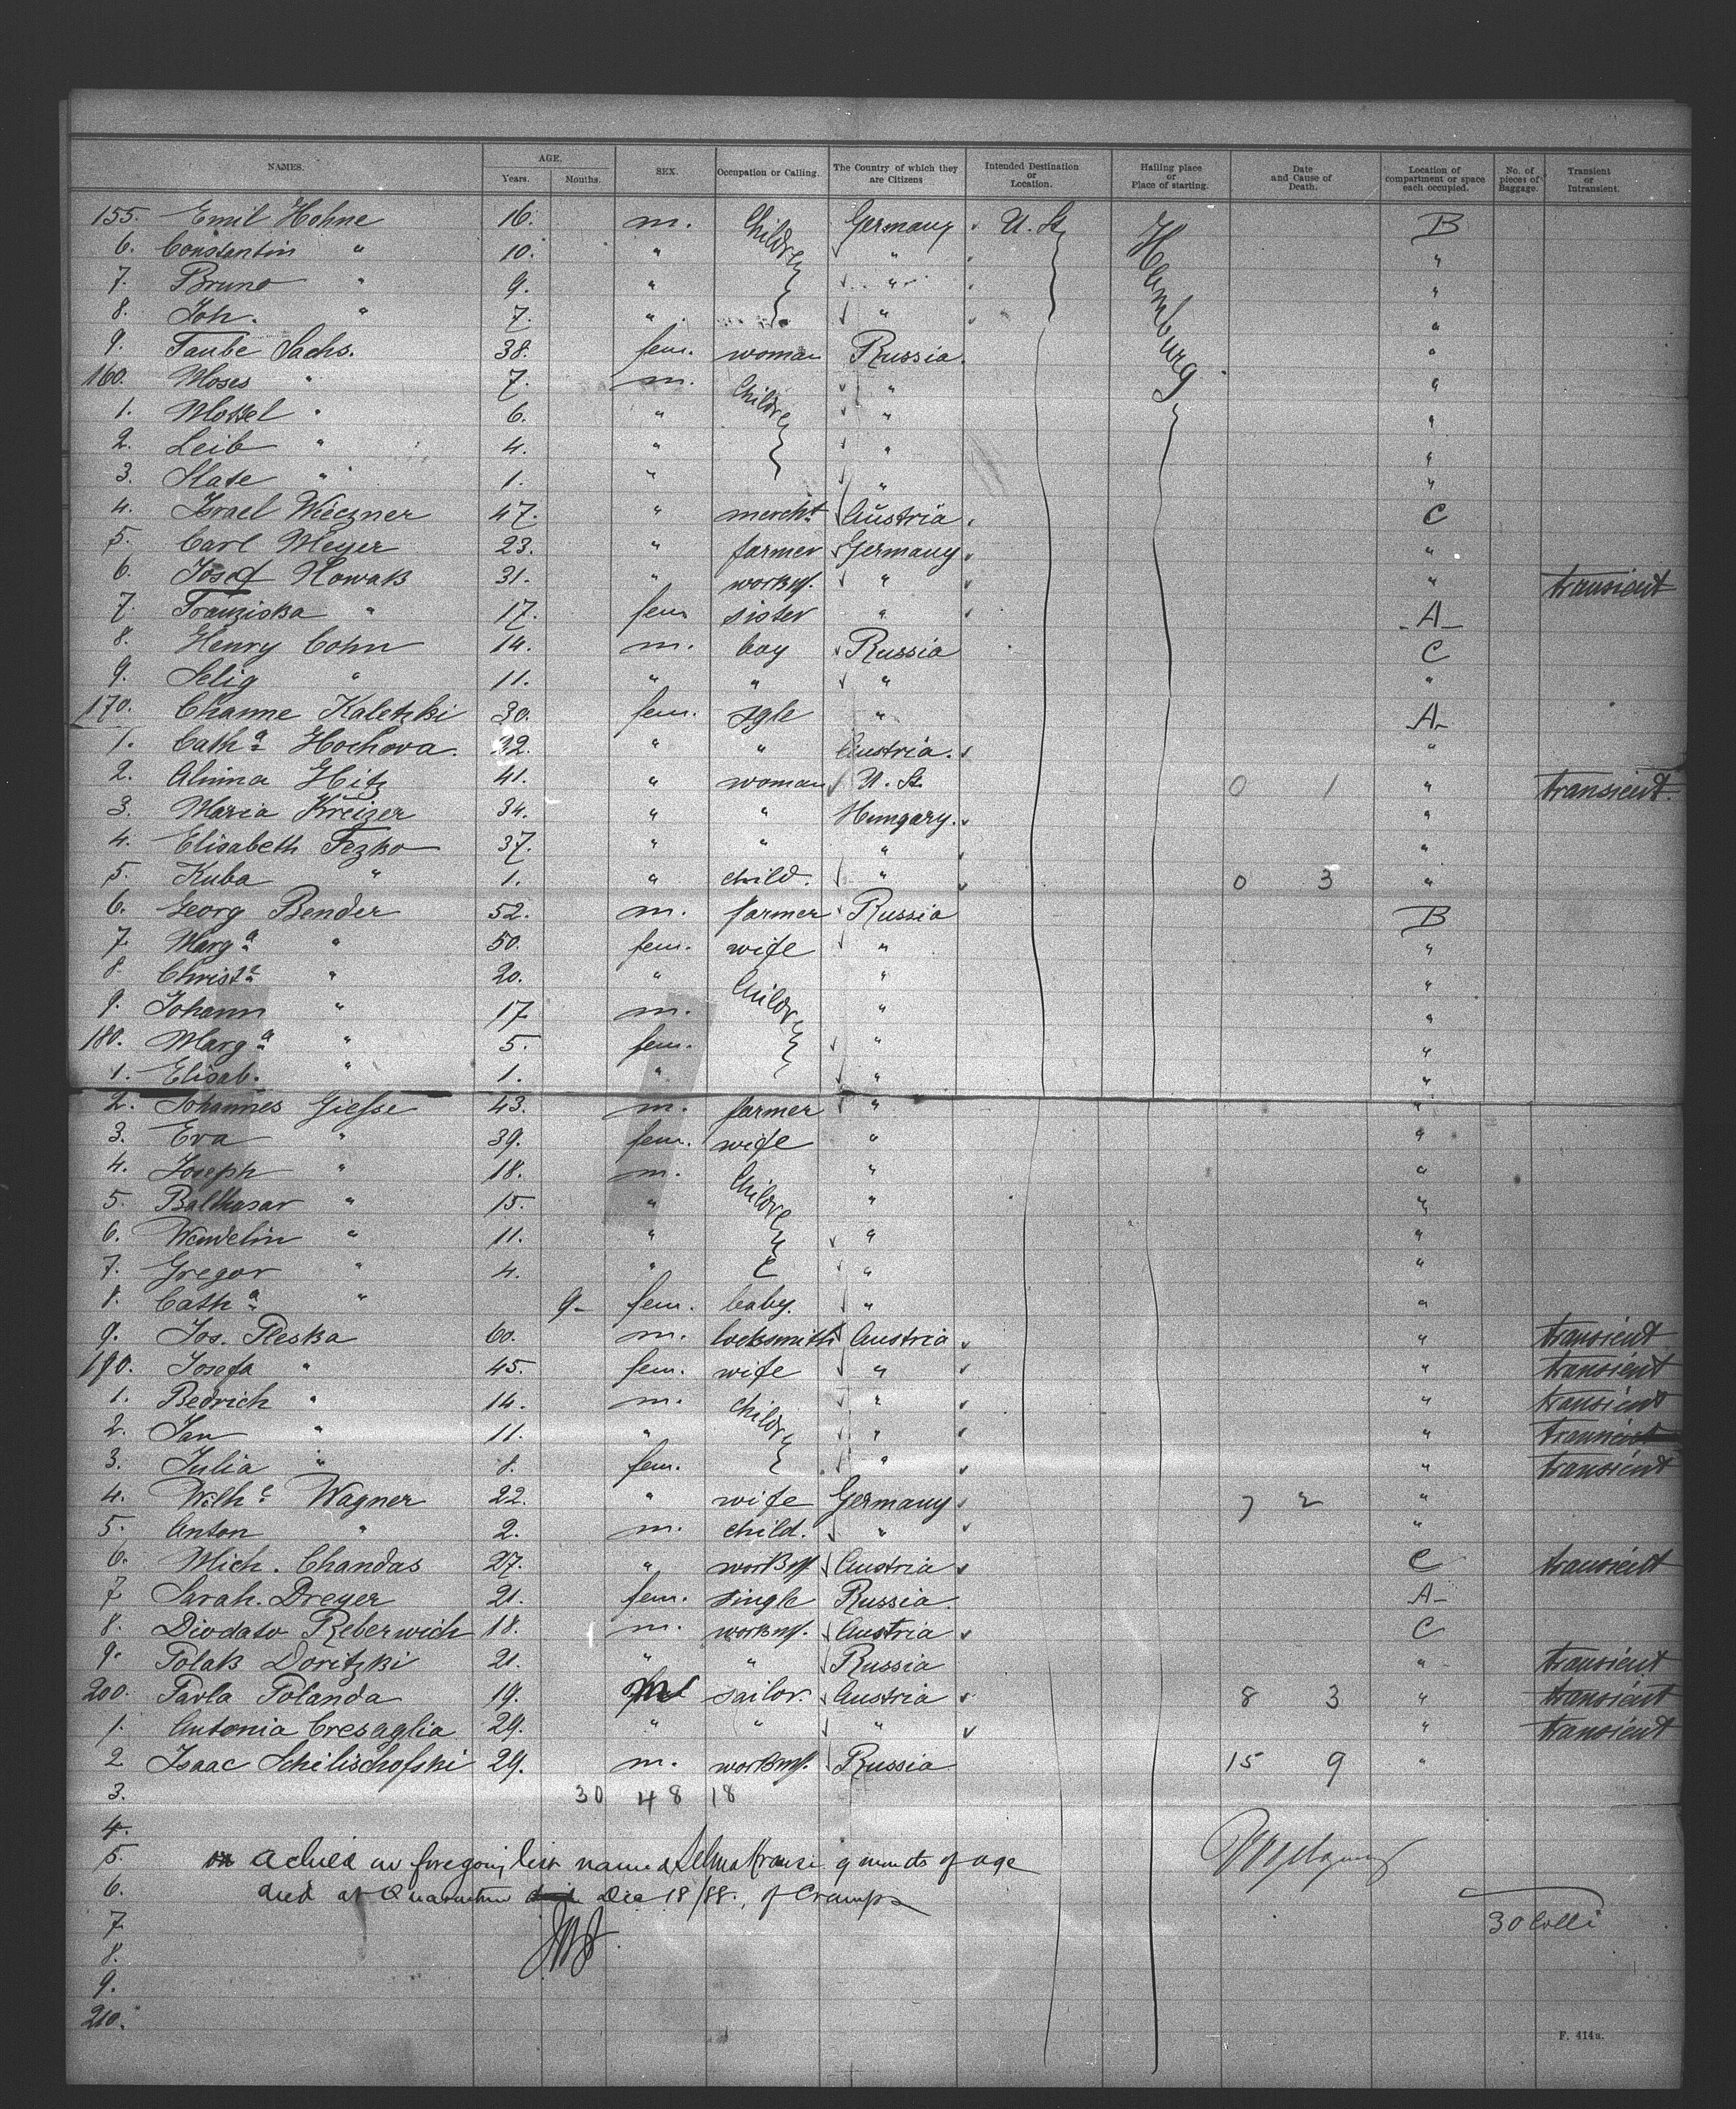 NAMES. AGE. Years. Months. SEX. Occupation or Calling. The Country of which they are Citizens Intended Destination or Location. Hailing place or Place of starting. Date and Cause of Death. Location of compartment or space each occupied. No. of pieces of Baggage. Transient or Intransient.
155. Emil Hohne 16. m. Children Germany U. St. Hamburg B
6. Constantin " 10. " " "
7. Bruno " 9. " " "
8. Joh. " 7. " " "
9. Taube Sachs. 38. fem. woman Russia. "
160. Moses " 7. m. Children " "
1. Mossel " 6. " " "
2. Leib " 4. " " "
3. Slate " 1. " " "
4. Israel Wieczner 47. " mercht Austria. C
5. Carl Meyer 23. " farmer Germany "
6. Josef Nowak 31. " workm. " " transient
7. Franziska " 17. fem sister " A
8. Henry Cohn 14. m. boy Russia C
9. Selig " 11. " " " "
170. Channe Kaletzki 30. fem. sgle " A
1. Catha Hochova. 22. " " Austria. "
2. Alwina Hitz 41. " woman U. St. 0 1 " transient.
3. Maria Kreizer 34. " " Hungary. "
4. Elisabeth Fezko 37. " " " "
5. Kuba " 1. " child. " 0 3 "
6. Georg Bender 52. m. farmer Russia B
7. Marga " 50. fem. wife " "
8. Christe " 20. " Children " "
9. Johann " 17 m. " "
180. Marga " 5. fem. " "
1. Elisab. " 1. " " "
2. Johannes Giesse 43. m. farmer " "
3. Eva " 39. fem. wife " "
4. Joseph " 18. m. Children " "
5. Balthasar " 15. " " "
6. Wendelin " 11. " " "
7. Gregor " 4. " " "
8. Catha " 9 fem. baby. " "
9. Jos. Pleska 60. m. locksmith Austria " transient
190. Josefa " 45. fem. wife " " transient
1. Bedrich " 14. m. Children " " transient
2. Jan " 11. " " " transient
3. Julia " 8. fem. " " transient
4. Wilhe Wagner 22. " wife Germany 7 2 "
5. Anton " 2. m. child. " "
6. Mich. Chandas 27. " workm Austria C transient
7. Sarah. Dreyer 21. fem. single Russia A
8. Diodato Reberwich 18. m. workm. Austria C
9. Polak Doritzki 21. " " Russia " transient
200. Pavla Polanda 19. m sailor. Austria 8 3 " transient
1. Antonia Cresaglia 29. " " " " transient
2 Isaac Schilischofski 29. m. workm. Russia 15 9 "
3. 30 48 18
4.
5. a child on foregoing list named Selma Krause 9 months of age
6. died at Quarantine Dec 18/88. of Cramps
7. 30 Colli
8.
9.
210.
F. 414u.